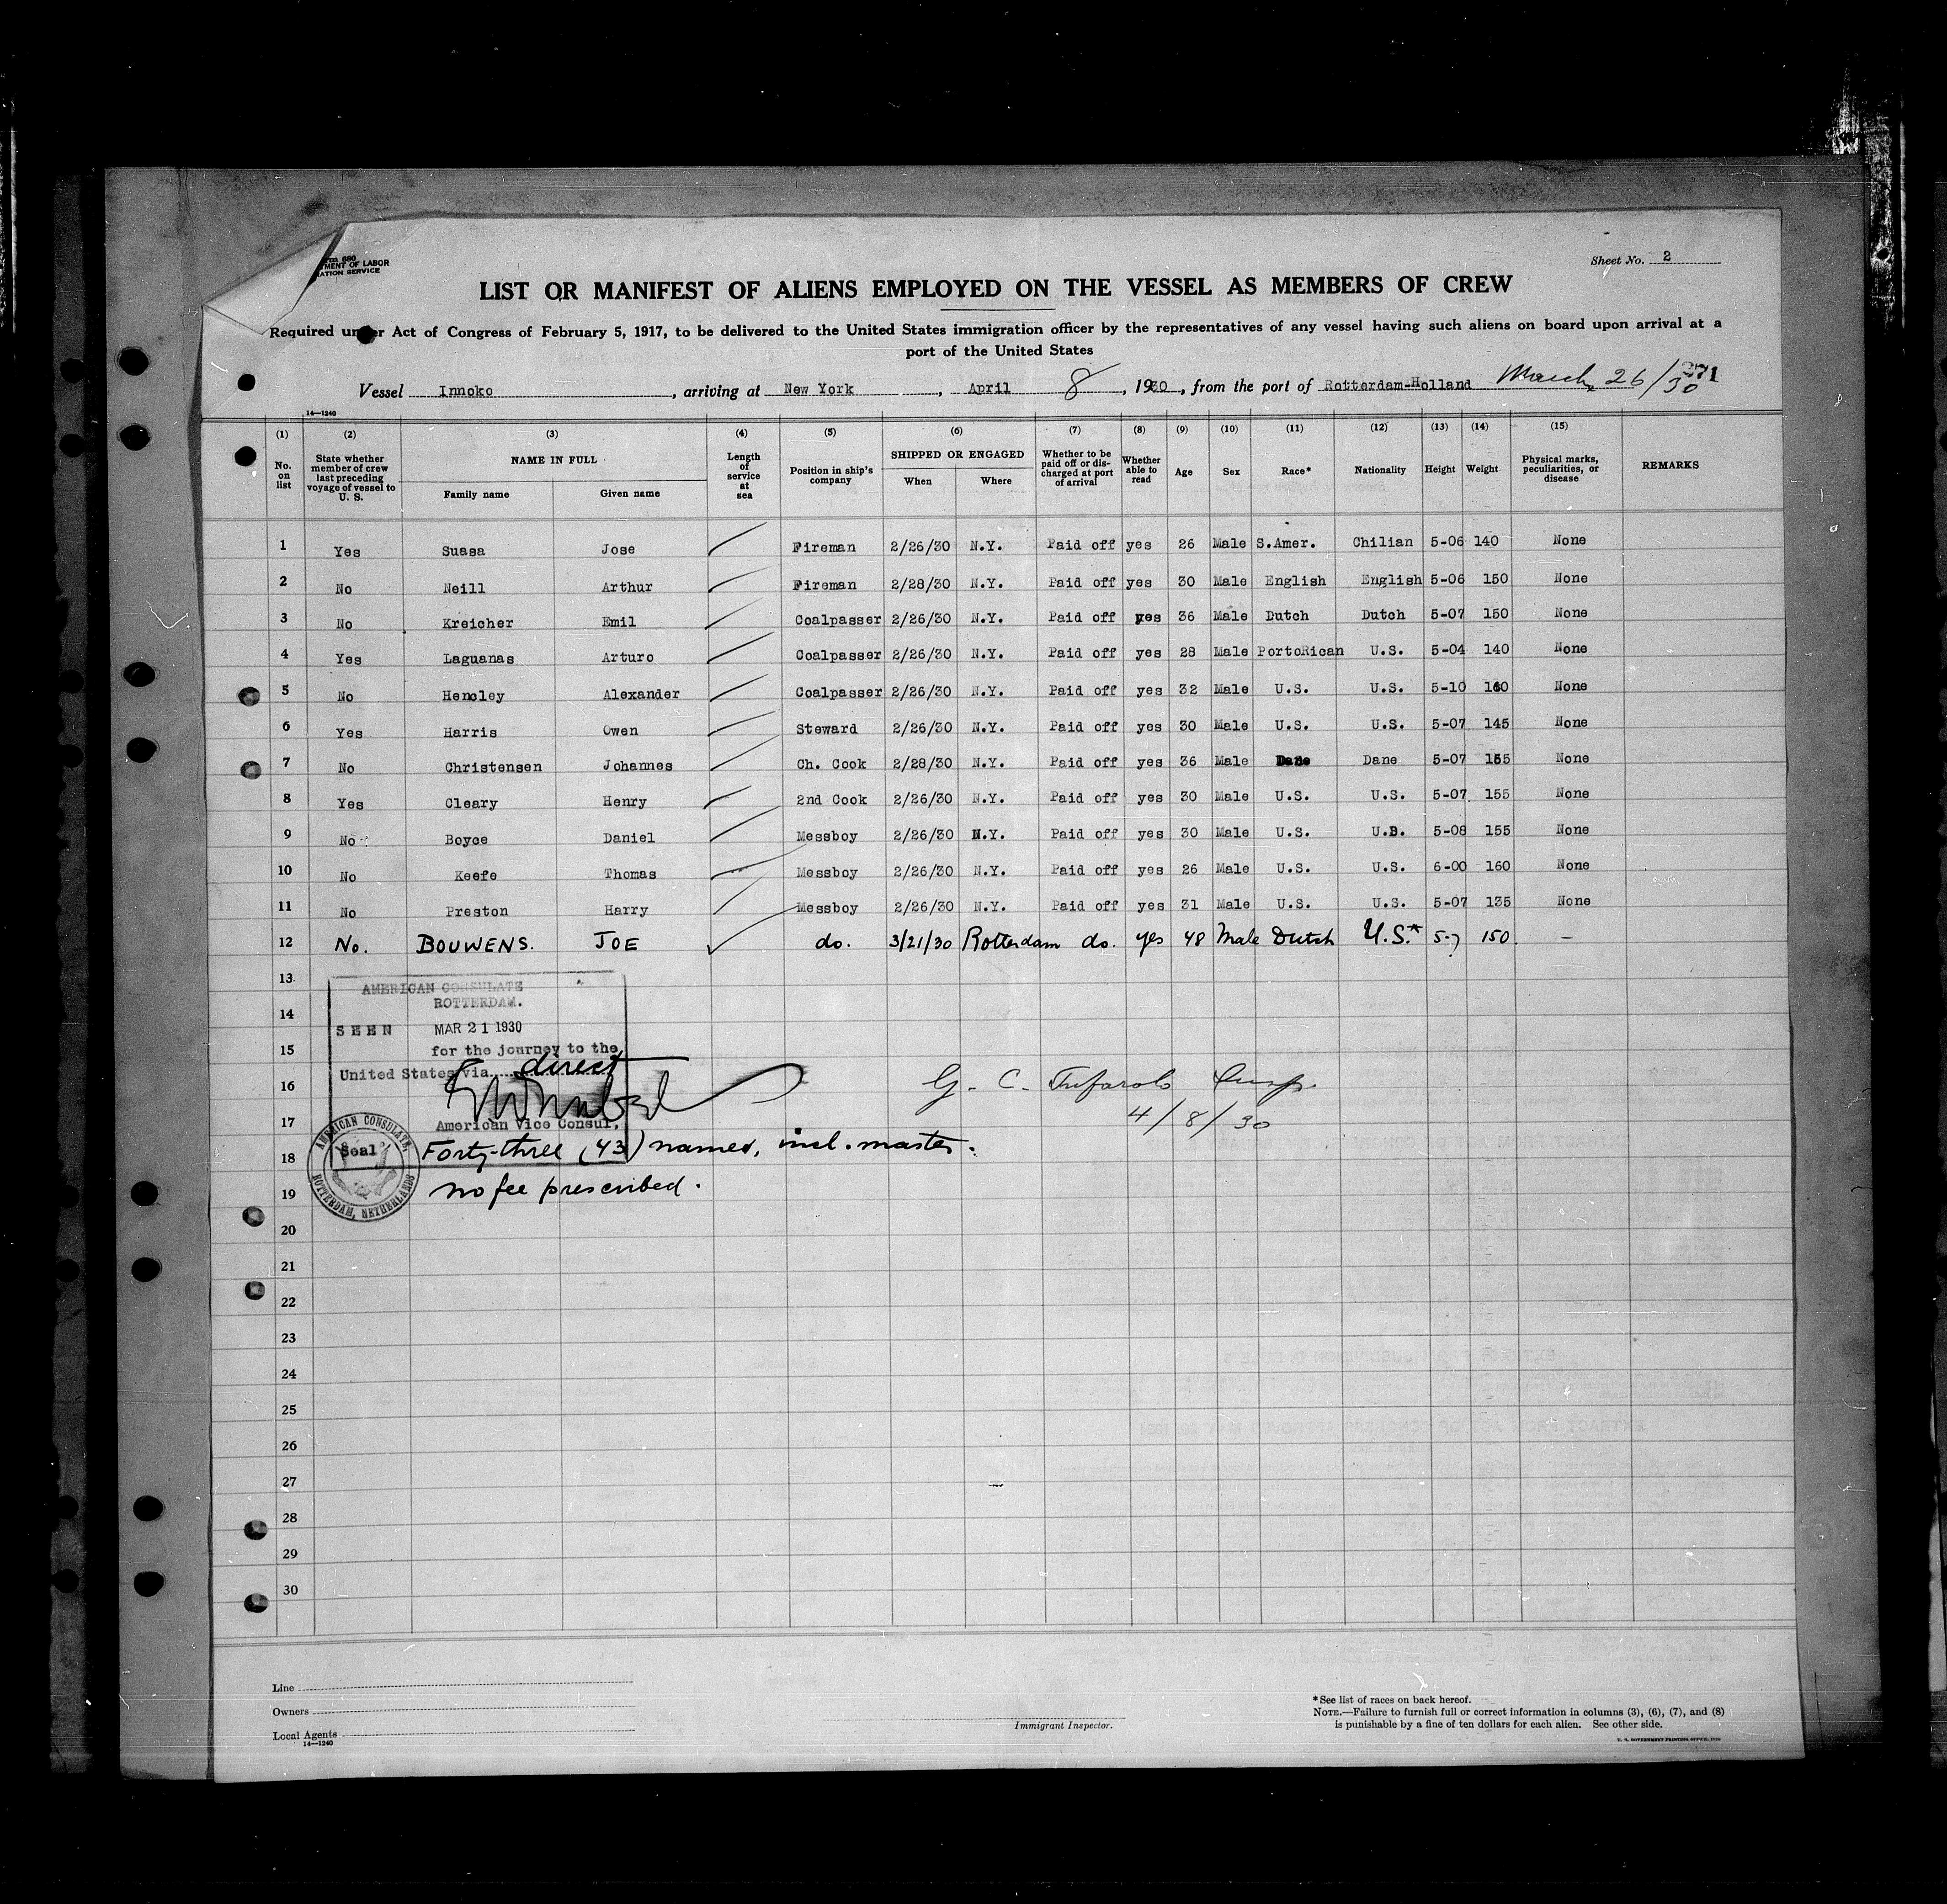 rm 680
MENT OF LABOR
ATION SERVICE
Sheet No. 2
LIST OR MANIFEST OF ALIENS EMPLOYED ON THE VESSEL AS MEMBERS OF CREW
Required under Act of Congress of February 5, 1917, to be delivered to the United States immigration officer by the representatives of any vessel having such aliens on board upon arrival at a
port of the United States
Vessel Innoko, arriving at New York, April 8, 1930, from the port of Rotterdam-Holland March 26/30
14—1240
(1) (2) (3) (4) (5) (6) (7) (8) (9) (10) (11) (12) (13) (14) (15)
No. on list State whether member of crew last preceding voyage of vessel to U. S. NAME IN FULL Family name Given name Length of service at sea Position in ship's company SHIPPED OR ENGAGED When Where Whether to be paid off or discharged at port of arrival Whether able to read Age Sex Race* Nationality Height Weight Physical marks, peculiarities, or disease REMARKS
1 Yes Suasa Jose Fireman 2/26/30 N.Y. Paid off yes 26 Male S.Amer. Chilian 5-06 140 None
2 No Neill Arthur Fireman 2/28/30 N.Y. Paid off yes 30 Male English English 5-06 150 None
3 No Kreicher Emil Coalpasser 2/26/30 N.Y. Paid off yes 36 Male Dutch Dutch 5-07 150 None
4 Yes Laguanas Arturo Coalpasser 2/26/30 N.Y. Paid off yes 28 Male PortoRican U.S. 5-04 140 None
5 No Hencley Alexander Coalpasser 2/26/30 N.Y. Paid off yes 32 Male U.S. U.S. 5-10 160 None
6 Yes Harris Owen Steward 2/26/30 N.Y. Paid off yes 30 Male U.S. U.S. 5-07 145 None
7 No Christensen Johannes Ch. Cook 2/28/30 N.Y. Paid off yes 36 Male Dane Dane 5-07 155 None
8 Yes Cleary Henry 2nd Cook 2/26/30 N.Y. Paid off yes 30 Male U.S. U.S. 5-07 155 None
9 No Boyce Daniel Messboy 2/26/30 N.Y. Paid off yes 30 Male U.S. U.S. 5-08 155 None
10 No Keefe Thomas Messboy 2/26/30 N.Y. Paid off yes 26 Male U.S. U.S. 6-00 160 None
11 No Preston Harry Messboy 2/26/30 N.Y. Paid off yes 31 Male U.S. U.S. 5-07 135 None
12 No. BOUWENS. JOE do. 3/21/30 Rotterdam do. yes 48 Male Dutch U.S.* 5-7 150. —
13
AMERICAN CONSULATE
ROTTERDAM.
14
SEEN MAR 21 1930
15
for the journey to the
United States via direct
16 G. C. Insp.
American Vice Consul,
17 4/8/30
Seal
AMERICAN CONSULATE, ROTTERDAM, NETHERLANDS
18 Forty-three (43) names, incl. master.
19 no fee prescribed.
20
21
22
23
24
25
26
27
28
29
30
Line
Owners
Local Agents
14—1240
Immigrant Inspector.
*See list of races on back hereof.
NOTE.—Failure to furnish full or correct information in columns (3), (6), (7), and (8)
is punishable by a fine of ten dollars for each alien. See other side.